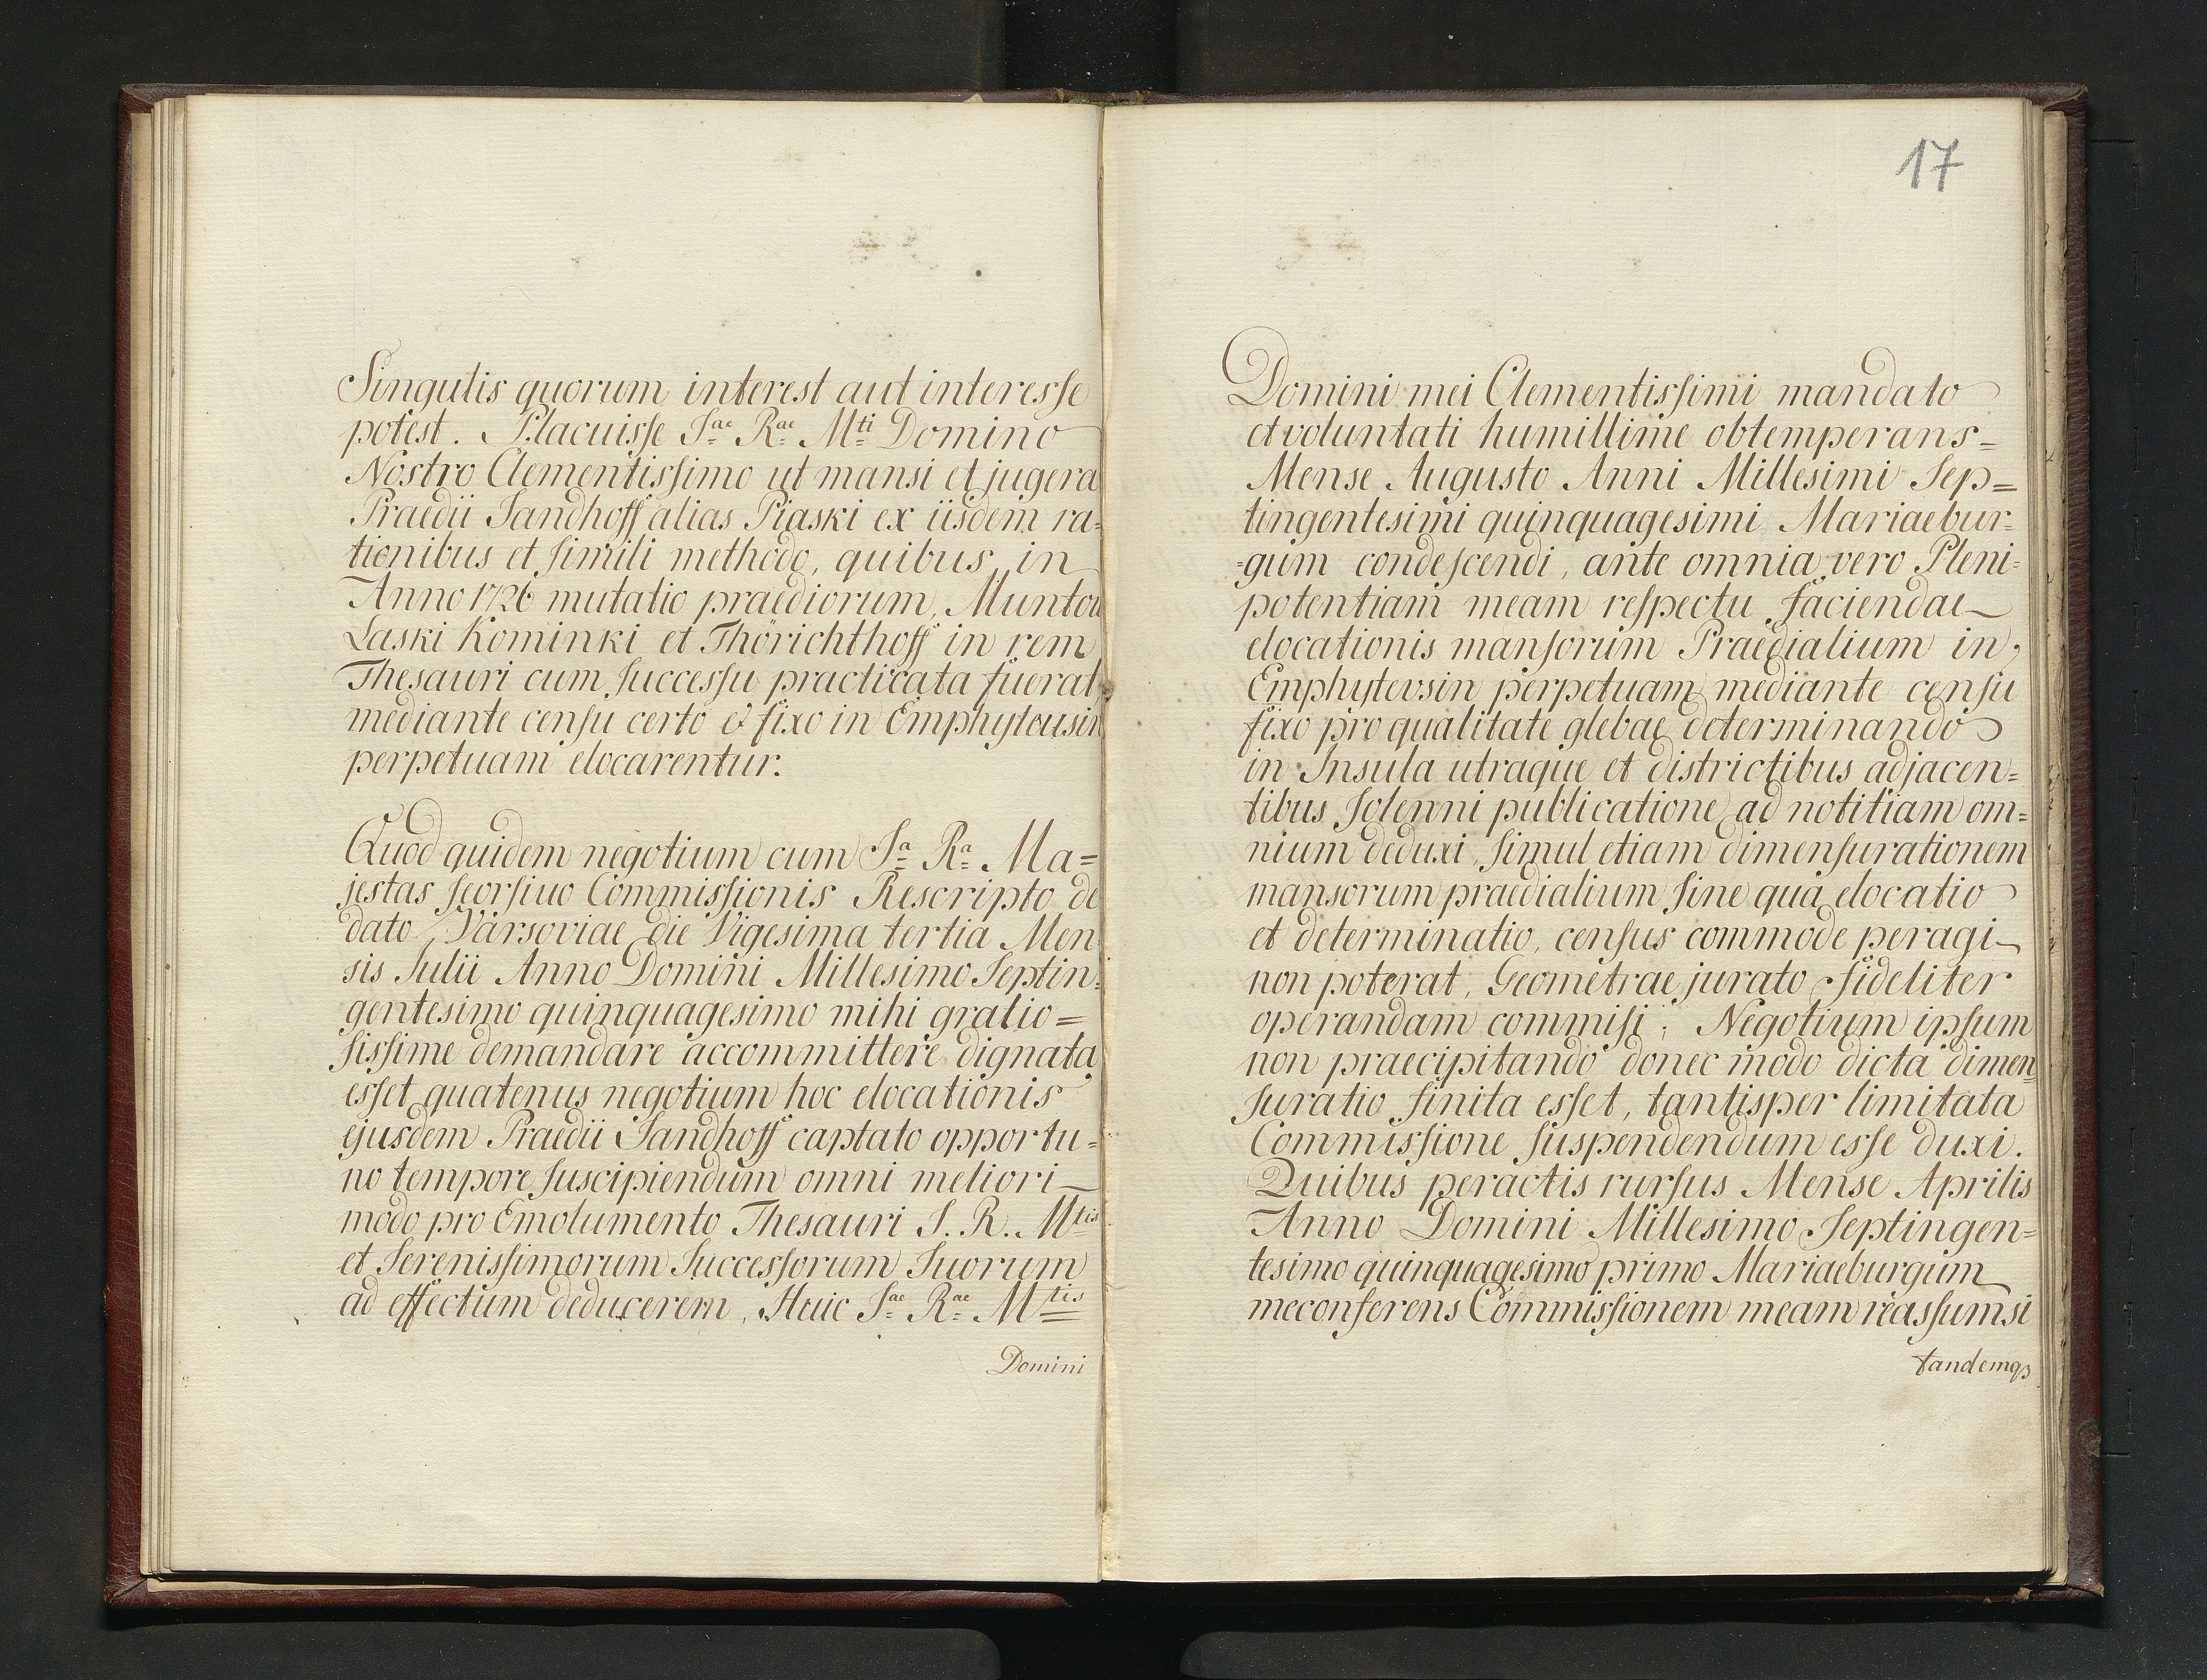 Singulis quorum interest aut interesse
potest. Placuisse Sae Rae Mti Domino
Nostro Clementissimo ut mansi et jugera
Praedii Sandhoff alias Piaski ex iisdem ra=
tionibus et simili methodo, quibus in
Anno 1726 mutatio praediorum, Muntou
Laski Kominki et Thörichthoff in rem
Thesauri cum successu practicata fuerat,
mediante censu certo & fixo in Emphyteusin
perpetuam elocarentur.
Quod quidem negotium cum Sa Ra Ma=
jestas seorsivo Commissionis Rescripto de
dato Varsoviae die Vigesima tertia Men
sis Julii Anno Domini Millesimo Septin=
gentesimo quinquagesimo mihi gratio=
sissime demandare accommittere dignata
esset quatenus negotium hoc elocationis
ejusdem Praedii Sandhoff captato opportu=
no tempore suscipiendum omni meliori
modo pro Emolumento Thesauri S. R. Mtis
et Serenissimorum Successorum Suorum
ad effectum deducerem, Huic Sae Rae Mtis
Domini
17
Domini mei Clementissimi mandato
et voluntati humillime obtemperans=
Mense Augusto Anni Millesimi Sep=
tingentesimi quinquagesimi Mariaebur=
=gum condescendi, ante omnia vero Pleni=
potentiam meam respectu faciendae
elocationis mansorum Praedialium in,
Emphytevsin perpetuam mediante censu
fixo pro qualitate glebae determinando
in Insula utraque et districtibus adjacen=
tibus solenni publicatione ad notitiam om=
nium deduxi, simul etiam dimensurationem
mansorum praedialium sine qua elocatio
et determinatio, census commode peragi
non poterat, Geometrae jurato fideliter
operandam commisi; Negotium ipsum
non praecipitando donec modo dicta dimen
suratio finita esset, tantisper limitata
Commissione suspendendum esse duxi.
Quibus peractis rursus Mense Aprilis
Anno Domini Millesimo Septingen=
tesimo quinquagesimo primo Mariaeburgum
meconferens Commissionem meam reassumsi
tandemqꝫ